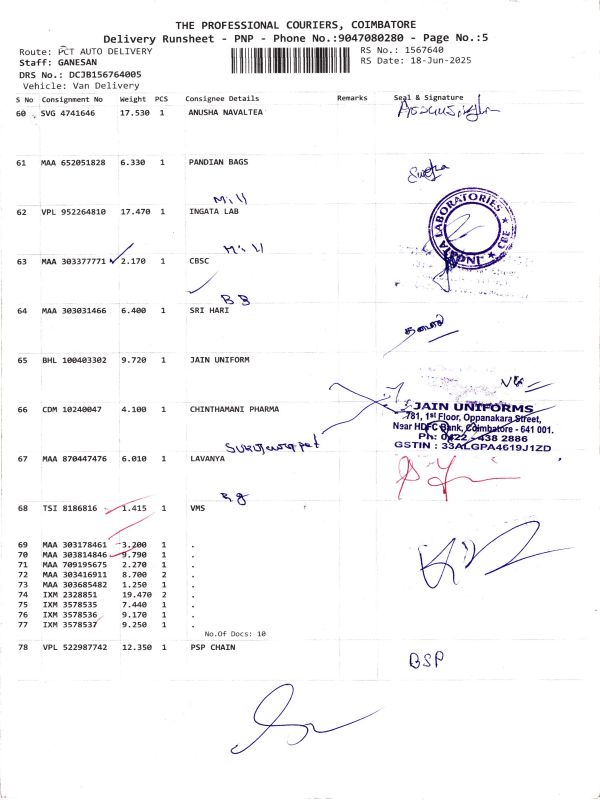 THE PROFESSIONAL COURIERS, COIMBATORE
Delivery Runsheet - PNP - Phone No.:9047080280 - Page No.:5
Route: PCT AUTO DELIVERY
RS No.: 1567640
Staff: GANESAN
RS Date: 18-Jun-2025
DRS No.: DCJB156764005
Vehicle: Van Delivery
S No Consignment No Weight PCS Consignee Details Remarks Seal & Signature
60 SVG 4741646 17.530 1 ANUSHA NAVALTEA
61 MAA 652051828 6.330 1 PANDIAN BAGS
Mill
62 VPL 952264810 17.470 1 INGATA LAB
LABORATORIES
CBE
Mill
63 MAA 303377771 2.170 1 CBSC
BB
64 MAA 303031466 6.400 1 SRI HARI
65 BHL 100403302 9.720 1 JAIN UNIFORM
66 CDM 10240047 4.100 1 CHINTHAMANI PHARMA
JAIN UNIFORMS
781, 1st Floor, Oppanakara Street,
Near HDFC Bank, Coimbatore - 641 001.
Ph: 0422 - 438 2886
GSTIN : 33ALGPA4619J1ZD
67 MAA 870447476 6.010 1 LAVANYA
68 TSI 8186816 1.415 1 VMS
69 MAA 303178461 3.200 1 .
70 MAA 303814846 9.790 1 .
71 MAA 709195675 2.270 1 .
72 MAA 303416911 8.700 2 .
73 MAA 303685482 1.250 1 .
74 IXM 2328851 19.470 2 .
75 IXM 3578535 7.440 1 .
76 IXM 3578536 9.170 1 .
77 IXM 3578537 9.250 1 .
No.Of Docs: 10
78 VPL 522987742 12.350 1 PSP CHAIN
BSP